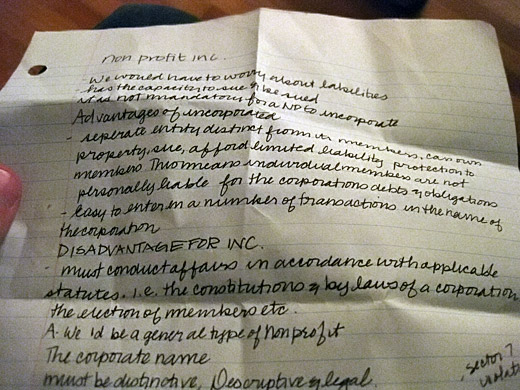 non profit inc.
- We would have to worry about liabilities
- has the capacity to sue & be sued
it is not mandatory for a NP to incorporate
Advantages of incorporated
- seperate entity distinct from its members, can own
property, sue, afford limited liability protection to
members This means individual members are not
personally liable for the corporations debts & obligations
- easy to enter in a number of transactions in the name of
the corporation
DISADVANTAGE FOR INC.
- must conduct affairs in accordance with applicable
statutes. i.e. the constitutions & by laws of a corporation
the election of members etc.
A. We'd be a general type of Nonprofit
The corporate name
must be distinctive, Descriptive & legal.
sector 7